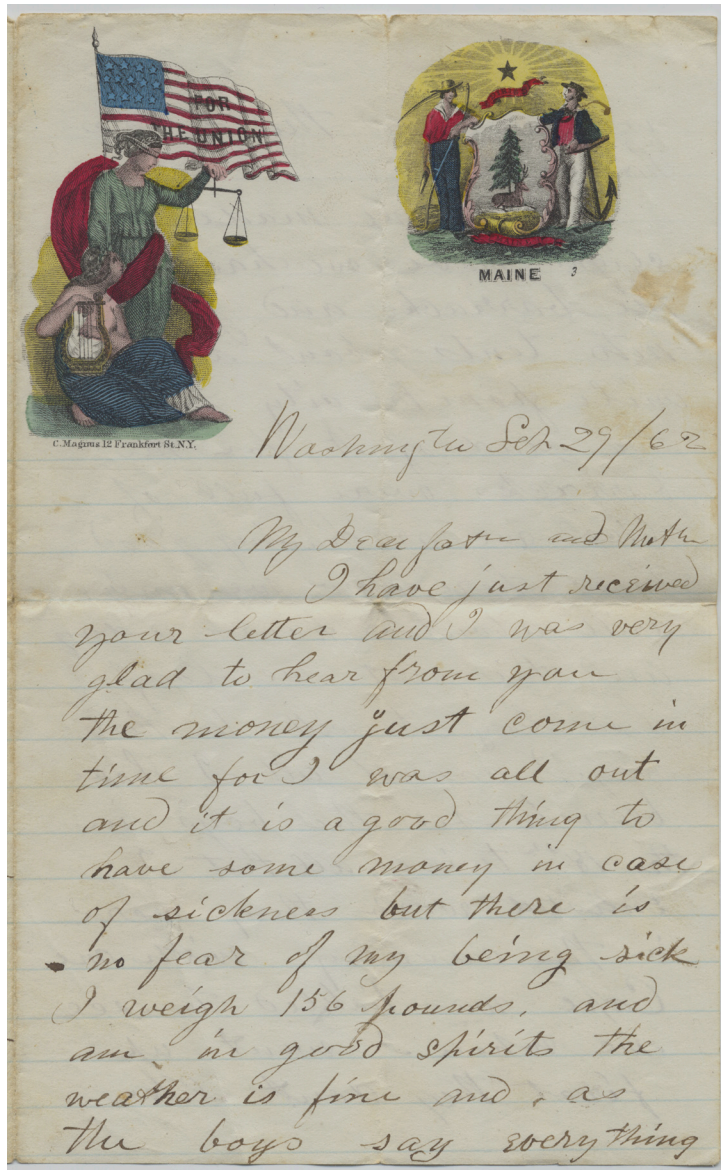 FOR
THE UNION
MAINE 3
C. Magnus 12 Frankfort St. N.Y.
Washington Sep 29/62
My Dear father and Mother
I have just received
your letter and I was very
glad to hear from you
the money just come in
time for I was all out
and it is a good thing to
have some money in case
of sickness but there is
no fear of my being sick
I weigh 156 pounds. and
am in good spirits the
weather is fine and, as
the boys say everything